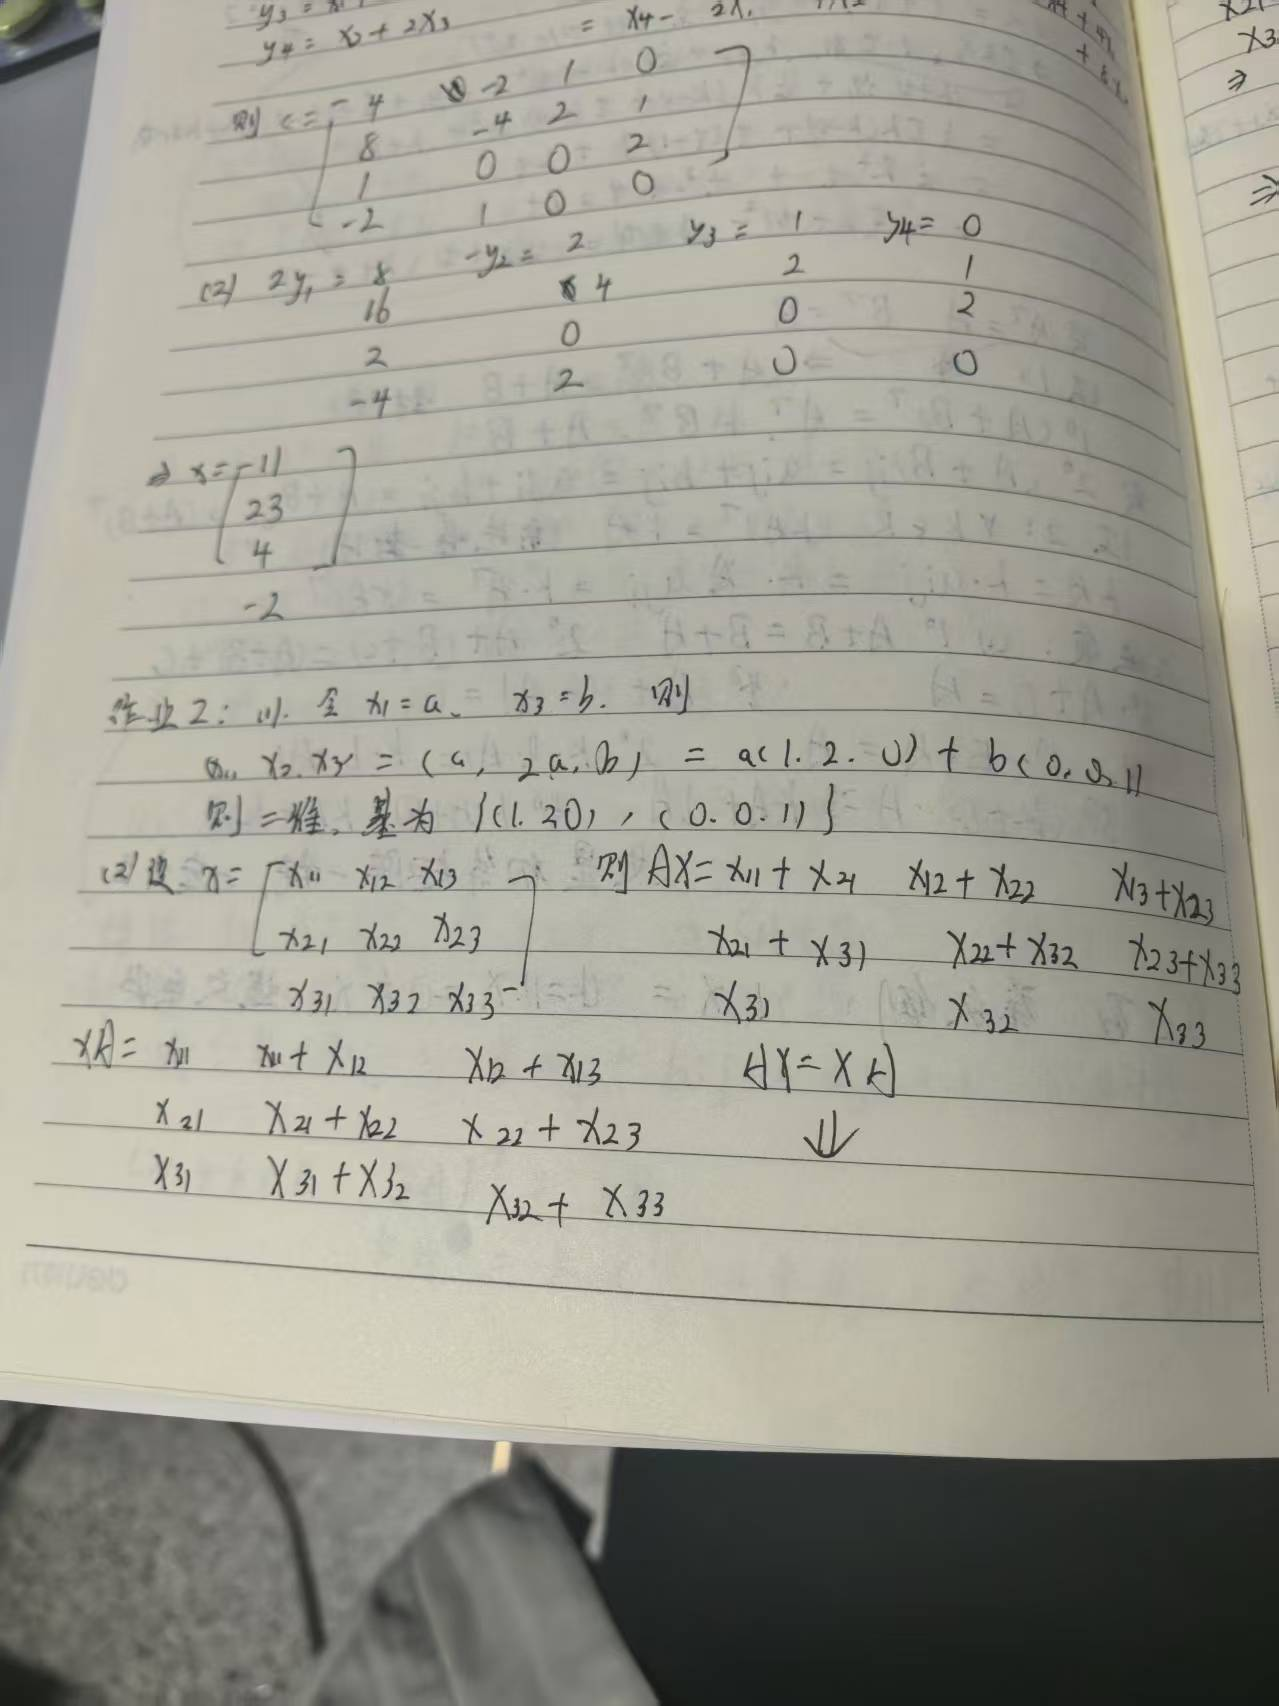 y3 =
y4 = x3 + 2x3 = x4 - 2x
则 c = 4 -2 1 0
8 -4 2 1
1 0 0 2
-2 1 0 0
(2) 2y1 = 8 -y2 = 2 y3 = 1 y4 = 0
16 4 2 1
2 0 0 2
-4 2 0 0
⇒ x = -11
23
4
-2
作业2: (1). 令 x1 = a、 x3 = b. 则
x2, x3 = (a, 2a, b) = a(1. 2. 0) + b(0, 0, 1)
则二维、基为 {(1. 2 0), (0. 0. 1)}
(2) 设 x = x11 x12 x13 则 AX = x11 + x21 x12 + x22 x13 + x23
x21 x22 x23 x21 + x31 x22 + x32 x23 + x33
x31 x32 x33 x31 x32 x33
XA = x11 x11 + x12 x12 + x13 AX = XA
x21 x21 + x22 x22 + x23 ⇓
x31 x31 + x32 x32 + x33